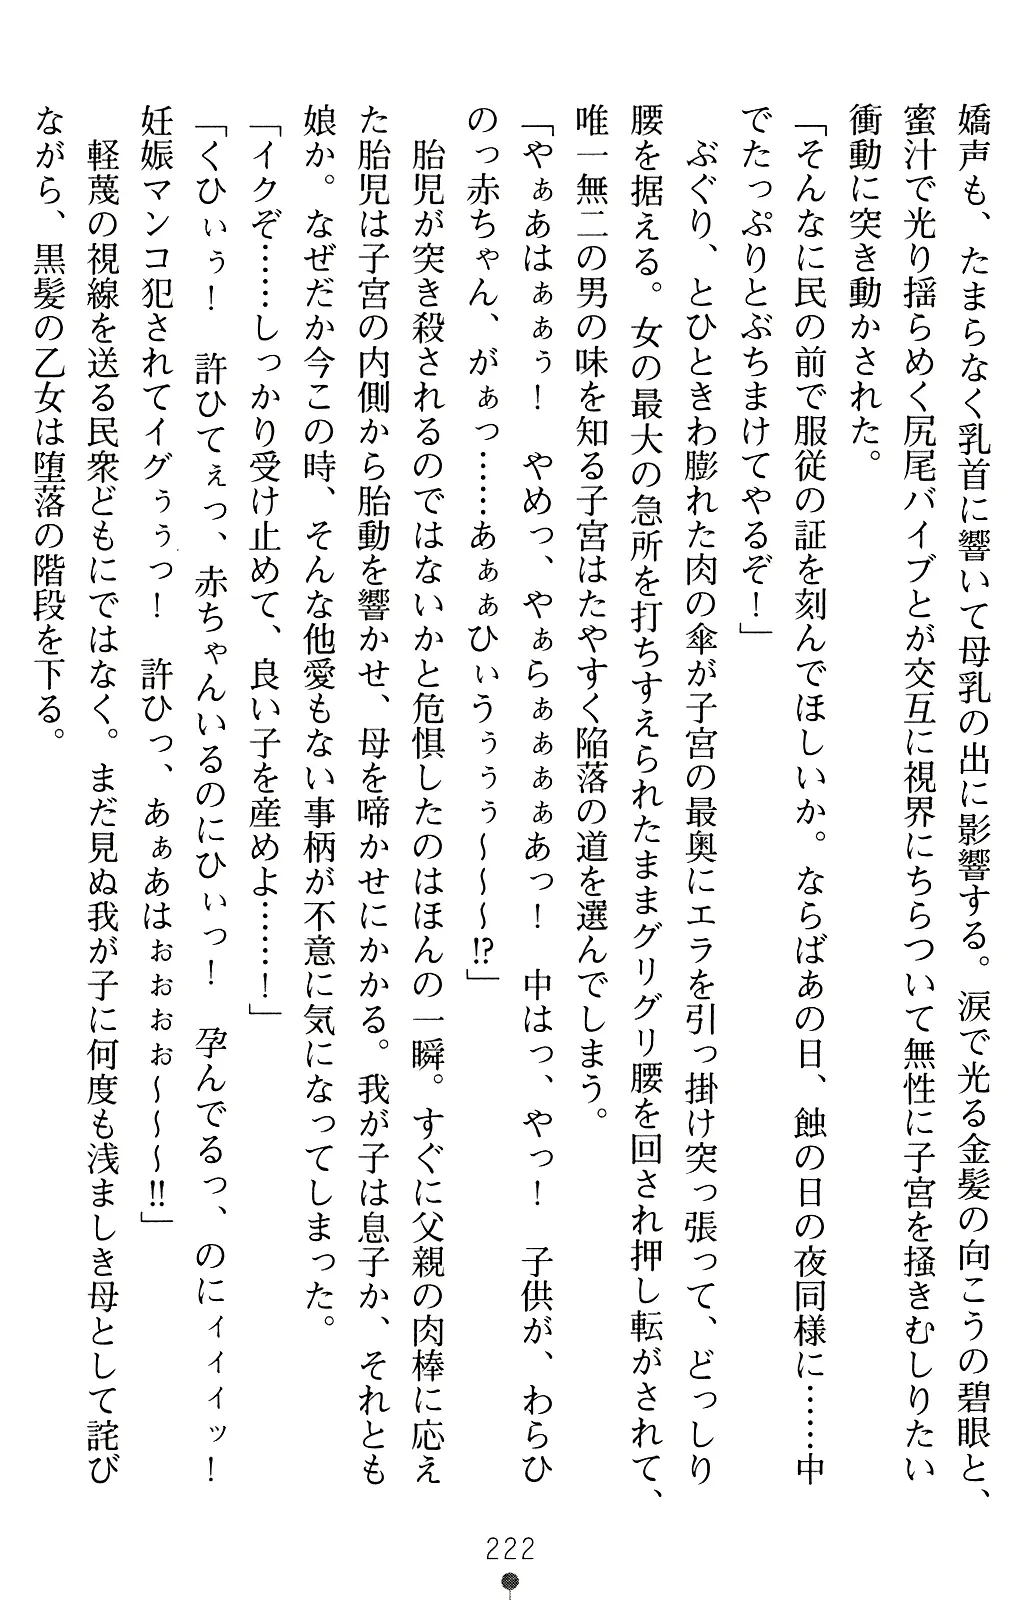 嬌声も、たまらなく乳首に響いて母乳の出に影響する。涙で光る金髪の向こうの碧眼と、
蜜汁で光り揺らめく尻尾バイブとが交互に視界にちらついて無性に子宮を掻きむしりたい
衝動に突き動かされた。
「そんなに民の前で服従の証を刻んでほしいか。ならばあの日、蝕の日の夜同様に……中
でたっぷりとぶちまけてやるぞ！」
　ぶぐり、とひときわ膨れた肉の傘が子宮の最奥にエラを引っ掛け突っ張って、どっしり
腰を据える。女の最大の急所を打ちすえられたままグリグリ腰を回され押し転がされて、
唯一無二の男の味を知る子宮はたやすく陥落の道を選んでしまう。
「やぁあはぁぁぅ！　やめっ、やぁらぁぁぁぁあっ！　中はっ、やっ！　子供が、わらひ
のっ赤ちゃん、がぁっ……あぁぁひぃうぅぅぅ～～～!?」
　胎児が突き殺されるのではないかと危惧したのはほんの一瞬。すぐに父親の肉棒に応え
た胎児は子宮の内側から胎動を響かせ、母を啼かせにかかる。我が子は息子か、それとも
娘か。なぜだか今この時、そんな他愛もない事柄が不意に気になってしまった。
「イクぞ……しっかり受け止めて、良い子を産めよ……！」
「くひぃぅ！　許ひてぇっ、赤ちゃんいるのにひぃっ！　孕んでるっ、のにィィィッ！
妊娠マンコ犯されてイグぅぅっ！　許ひっ、あぁあはぉぉぉぉ～～～!!」
　軽蔑の視線を送る民衆どもにではなく。まだ見ぬ我が子に何度も浅ましき母として詫び
ながら、黒髪の乙女は堕落の階段を下る。
222